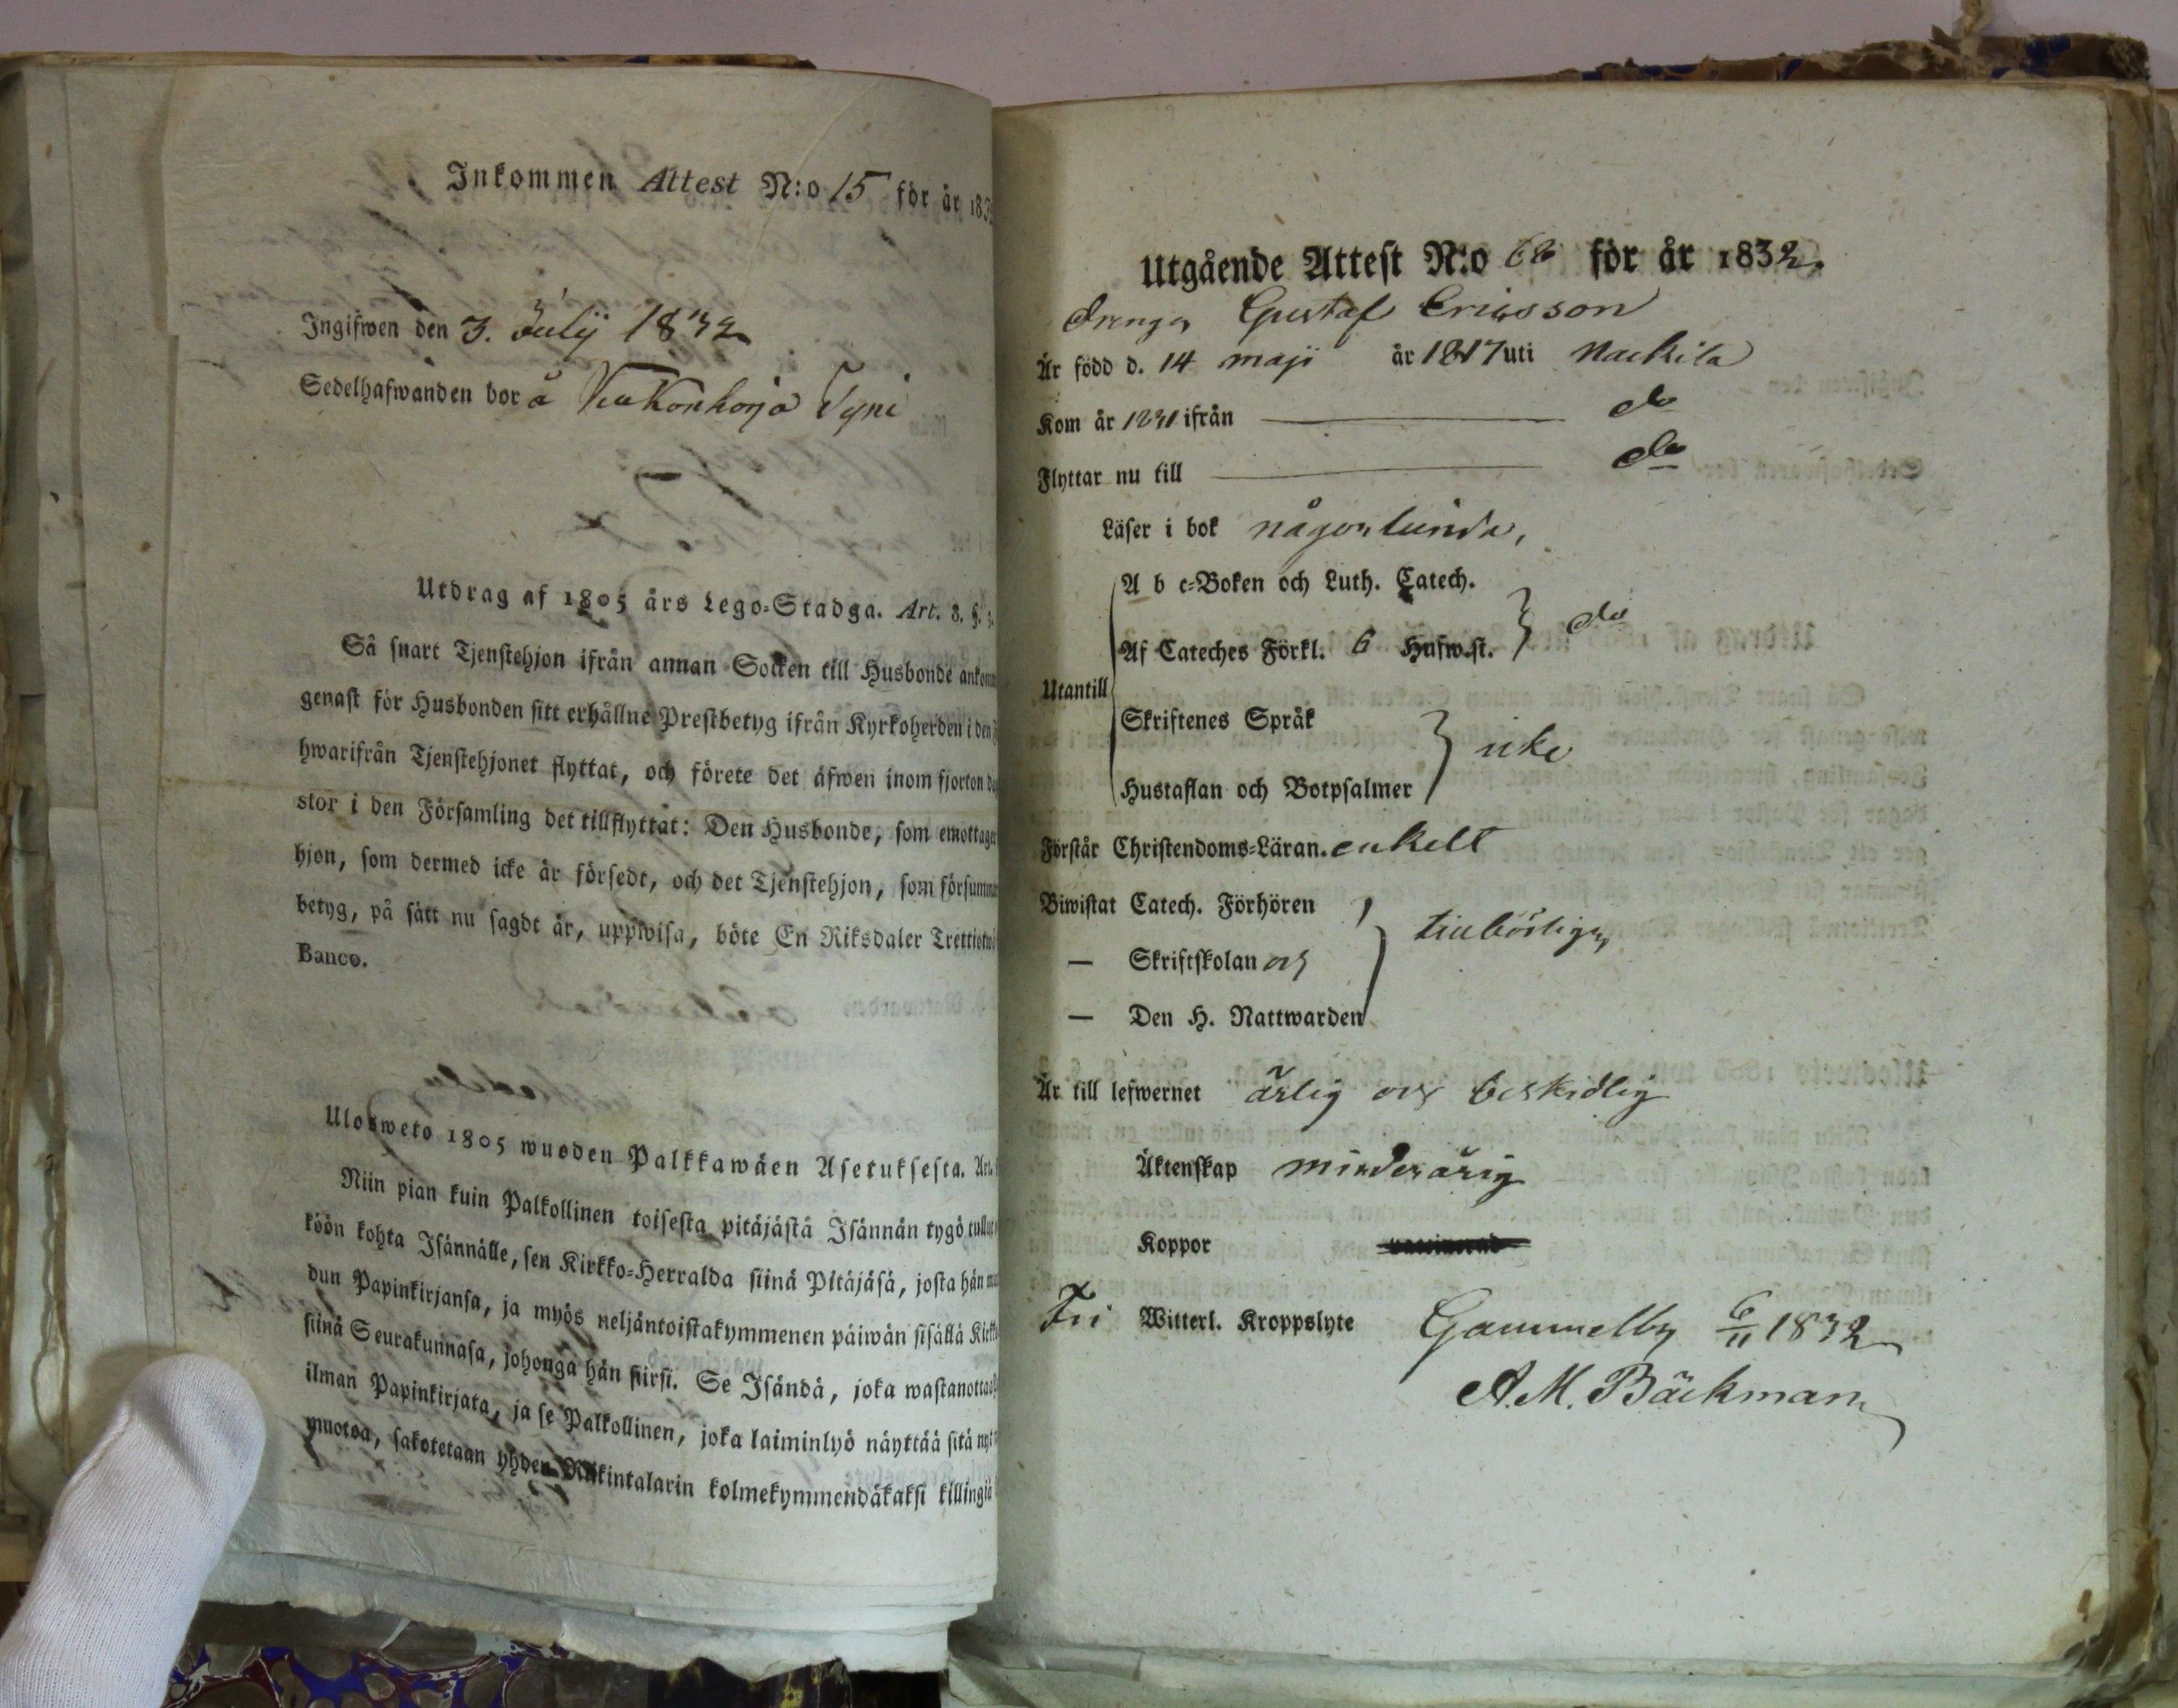 Inkommen Attest N:o 15 för år 183
Ingifwen den 3. Julij 1832
Sedelhafwanden bor å
Utdrag af 1805 års Lego-Stadga. Art. 8. §. 3.
Så snart Tjenstehjon ifrån annan Socken till Husbonde ankom
genast för Husbonden sitt erhållne Prestbetyg ifrån Kyrkoherden i den
hwarifrån Tjenstehjonet flyttat, och förete det äfwen inom fjorton da
stor i den Församling det tillflyttat: Den Husbonde, som emottager
hjon, som dermed icke är försedt, och det Tjenstehjon, som försumma
betyg, på sätt nu sagdt är, uppwisa, böte En Riksdaler Trettiotwå
Banco.
Ulosweto 1805 wuoden Palkkawäen Asetuksesta. Art.
Niin pian kuin Palkollinen toisesta pitäjästä Isännän tygö tullut
köön kohta Isännälle, sen Kirkko-Herralda siinä Pitäjäsä, josta hän
dun Papinkirjansa, ja myös neljäntoistakymmenen päiwän sisällä Kirkko
siinä Seurakunnasa, johonga hän siirsi. Se Isändä, joka wastanottaa
ilman Papinkirjata, ja se Palkollinen, joka laiminlyö näyttää sitä nyt
muotoa, sakotetaan yhden Riikintalarin kolmekymmendäkaksi killingiä
Utgående Attest N:o 68 för år 1832.
Drengen Gustaf Ericsson
Är född d. 14 maji år 1817 uti Nackila
Kom år 1831 ifrån do
Flyttar nu till do
Läser i bok någorlunda,
A b c-Boken och Luth. Catech.
Af Cateches Förkl. 6 Hufw.st. do
Utantill
Skriftenes Språk
icke
Hustaflan och Botpsalmer
Förstår Christendoms-Läran. enkelt
Biwistat Catech. Förhören
— Skriftskolan och tillbörligen
— Den H. Nattwarden
Är till lefwernet ärlig och beskedlig
Äktenskap minderårig
Koppor
Fri Witterl. Kroppslyte Gammelby 6/11 1832
A. M. Bäckman